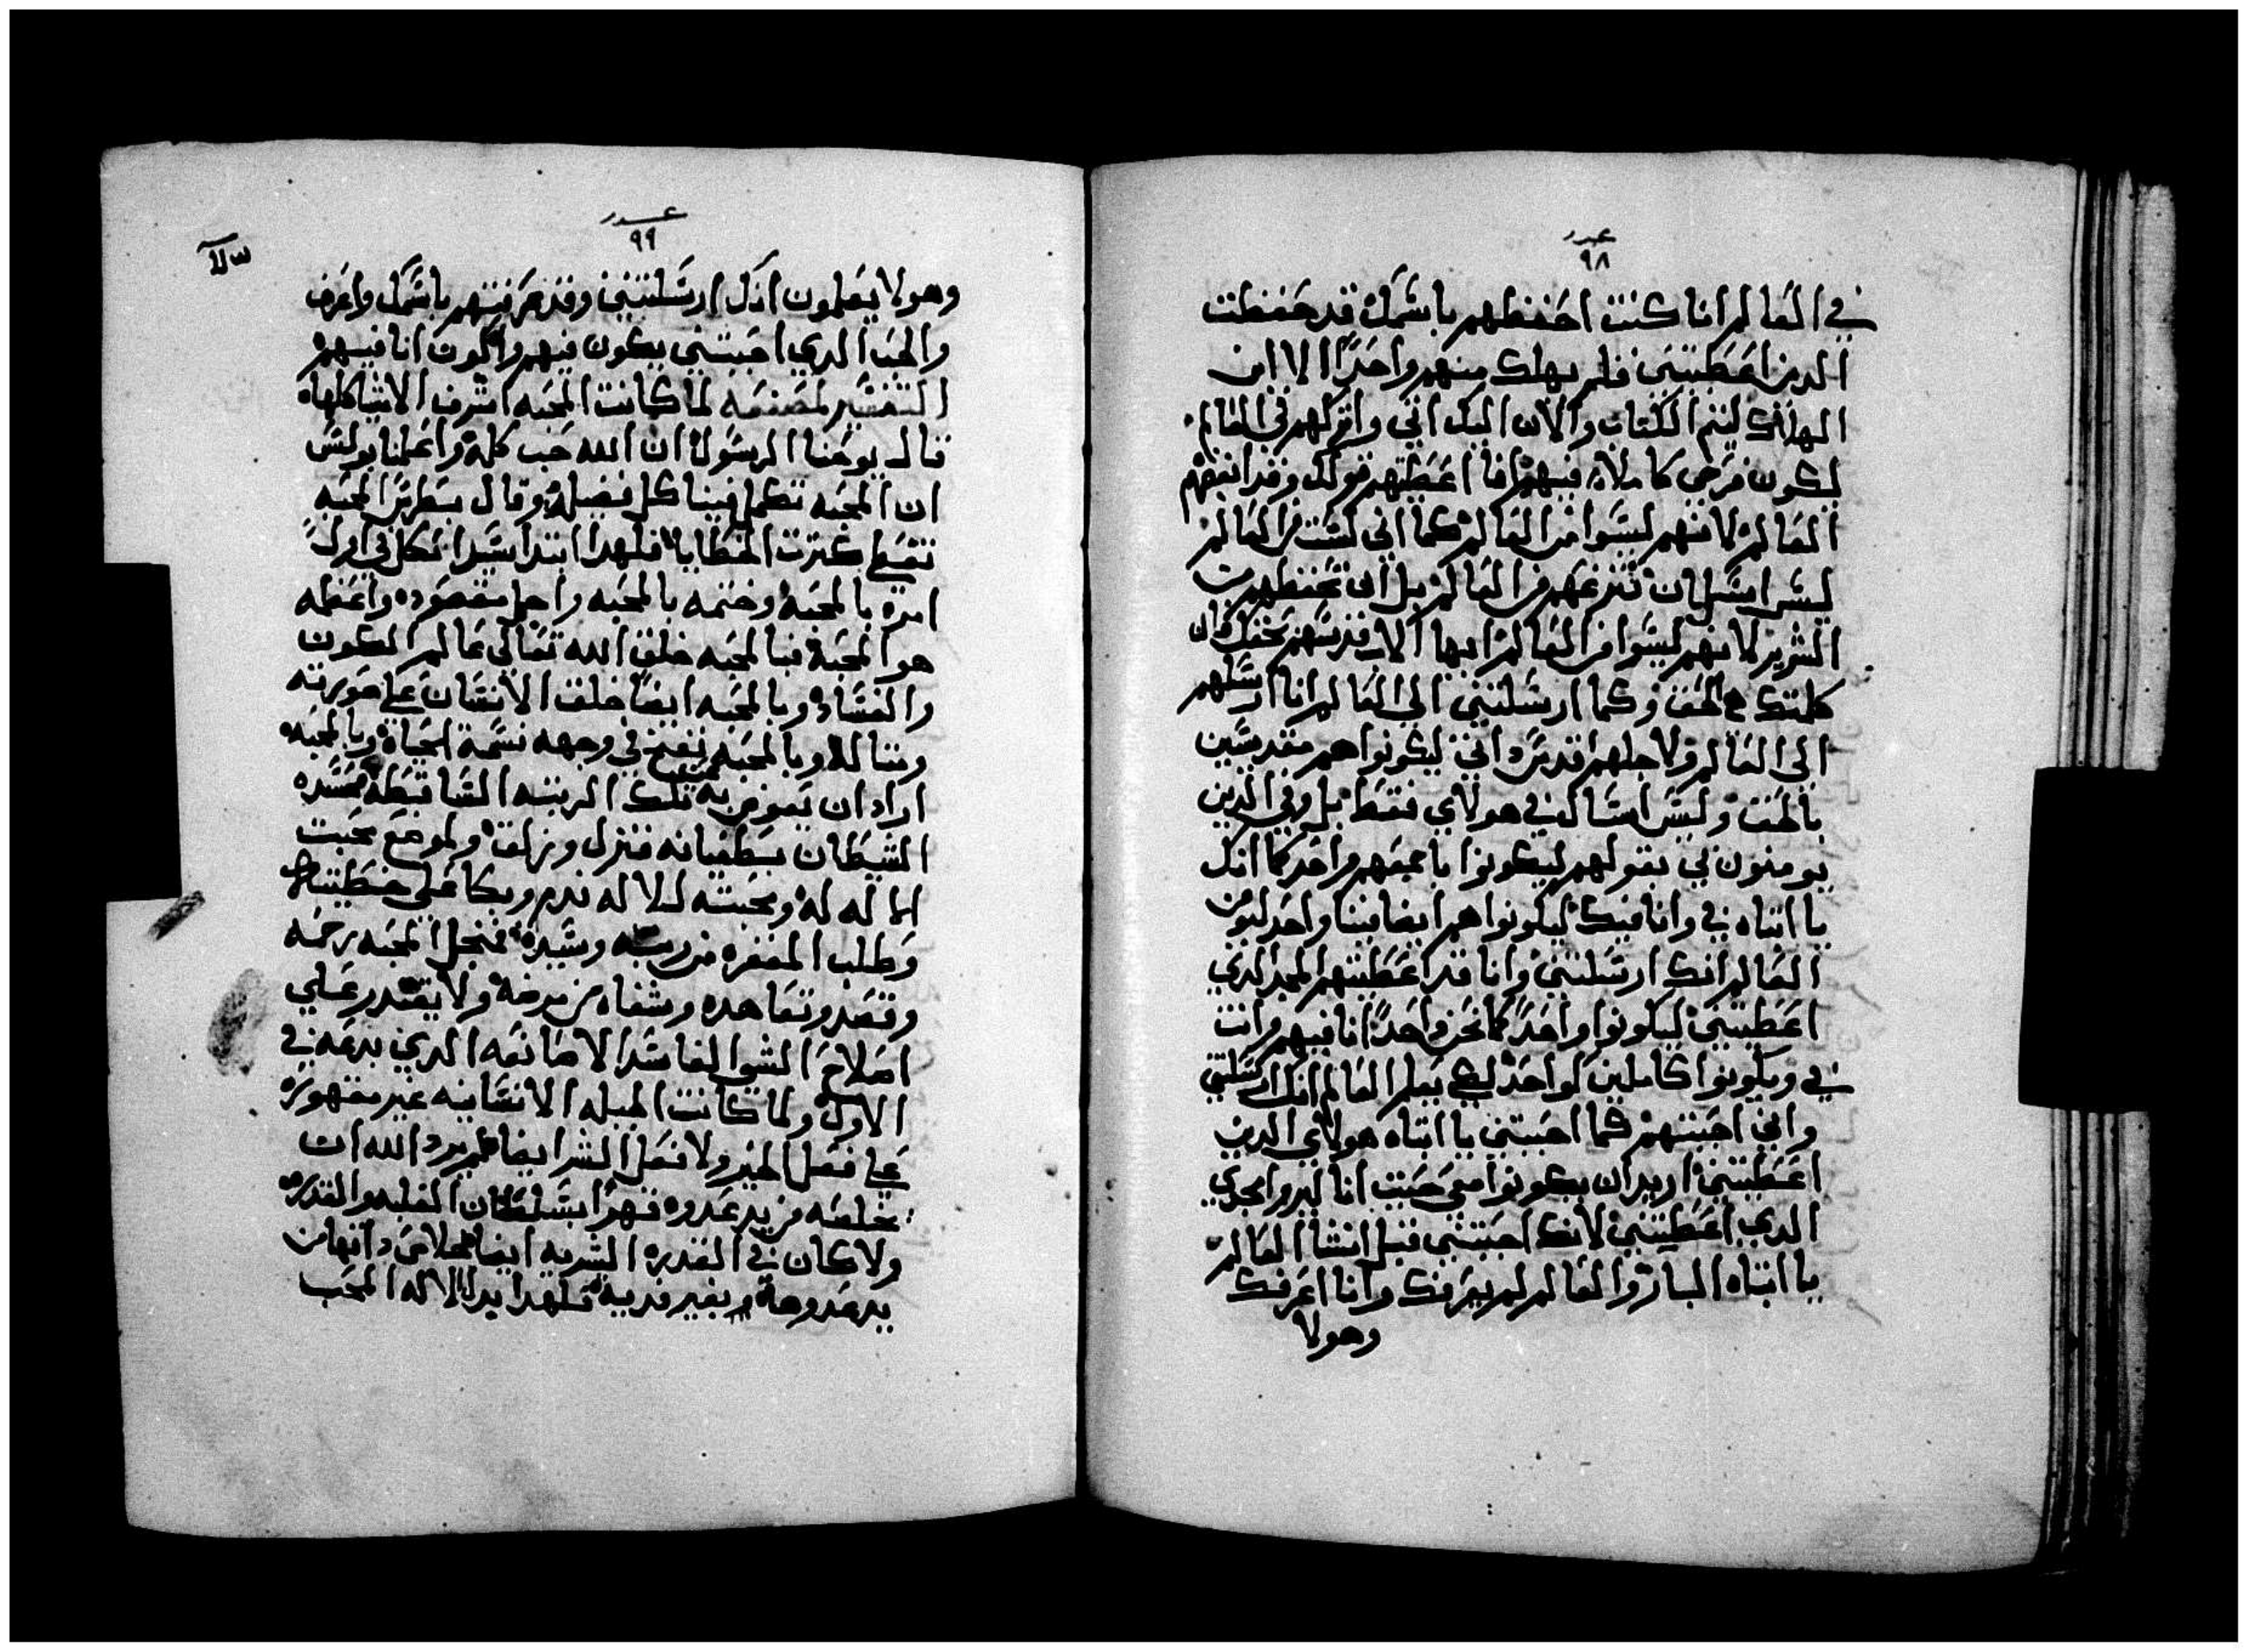 عدد
٩٨
في العالم انا كنت احفظهم باسمك قد حفظت
الدين اعطيتني فلم يهلك منهم واحدًا الا ابن
الهلاك ليتم الكتاب والان اليك اتي واتركهم في العالم
ليكون فرحي كاملا فيهم انا اعطيتهم قولك وقد ابغضهم
العالم لانهم ليسوا من العالم كما اني لست من العالم
ليس اسل ان تنزعهم من العالم بل ان تحفظهم من
الشرير لانهم ليسوا من العالم ايها الاب قدسهم بحقك فان
كلمتك هي الحق وكما ارسلتني الي العالم انا ارسلهم
الي العالم ولاجلهم اقدس داتي ليكونوا هم مقدسين
بالحق وليس اسال في هولاي فقط بل وفي الدين
يومنون بي بقولهم ليكونوا باجمعهم واحد كما انك
يا ابتاه في وانا فيك ليكونوا هم ايضا فينا واحد ليومن
العالم انك ارسلتني وانا قد اعطيتهم المجد الدي
اعطيتني ليكونوا واحدًا كما نحن واحدًا انا فيهم وانت
في ويكونوا كاملين لواحد لكي يعلم العالم انك ارسلتني
واني احببتهم كما احببتني يا ابتاه هولاي الدين
اعطيتني اريد ان يكونوا معي حيت انا ليروا مجدي
الدي اعطيتني لانك احببتني قبل انشا العالم
يا ابتاه البار والعالم لم يعرفك وانا اعرفك
وهولا
عدد
٩٩
وهولا يعلمون انك ارسلتني وقد عرفتهم باسمك واعرف
والحب الدي احببتني يكون فيهم واكون انا فيهم
التفسير لمصنفه لما كانت المحبه اشرف الاشيا كلها
قال يوحنا الرسول ان الله حب كله واعلمنا بولس
ان المحبه تكمل فينا كل فضيله وقال بطرس المحبه
تغطي كترت الخطايا فلهدا ابتدا سيدا لكل في اول
امره بالمحبه وختمه بالمحبه واجل مقصوده واعظمه
هو المحبة فبالمحبه خلق الله تعالي عالم الكون
والفساد وبالمحبه ايضا خلق الانسان علي صورته
ومثاله وبالمحبه نفخ في وجهه نسمة الحياة وبالمحبه
اراد ان يعوض به تلك الرتبه الساقطه فحسده
الشيطان بطغيانه فنزل وزلق ولموضع محبت
الاله له ومحبته للاله ندم وبكا علي خطيته
وطلب المغفره من ربه وسيده فمنجل المحبه رحمه
وقصد وتعاهده وشفاه من مرضه ولا يقتدر علي
اصلاح الشي الفاسد الا صانعه الدي بدعه في
الاول ولما كانت الجبله الانسانيه غير مقهوره
علي فعل الخير ولا فعل الشر ايضا لم يرد الله ان
يخلصه من يد عدوه قهرًا بسلطان الغلبه والقدره
ولا كان في القدره البشريه ايضا خلاص داتها من
يد عدوها بغير فديه فلهدا بدا الاله المحب